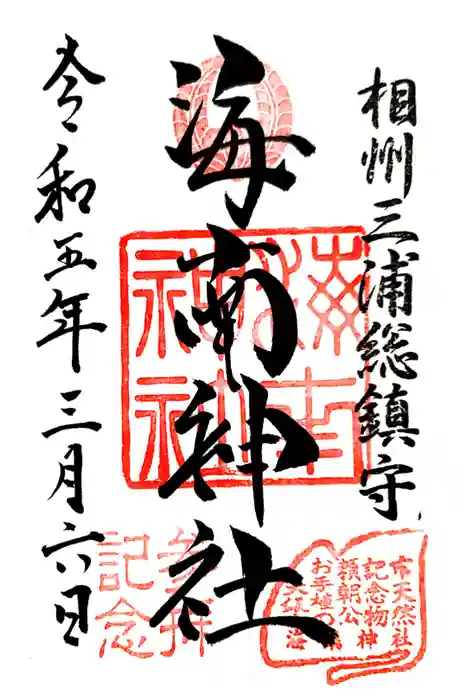 相州三浦総鎮守
海南神社
令和五年三月六日
海南神社
参拝記念
市天然記念物
頼朝公
お手植の